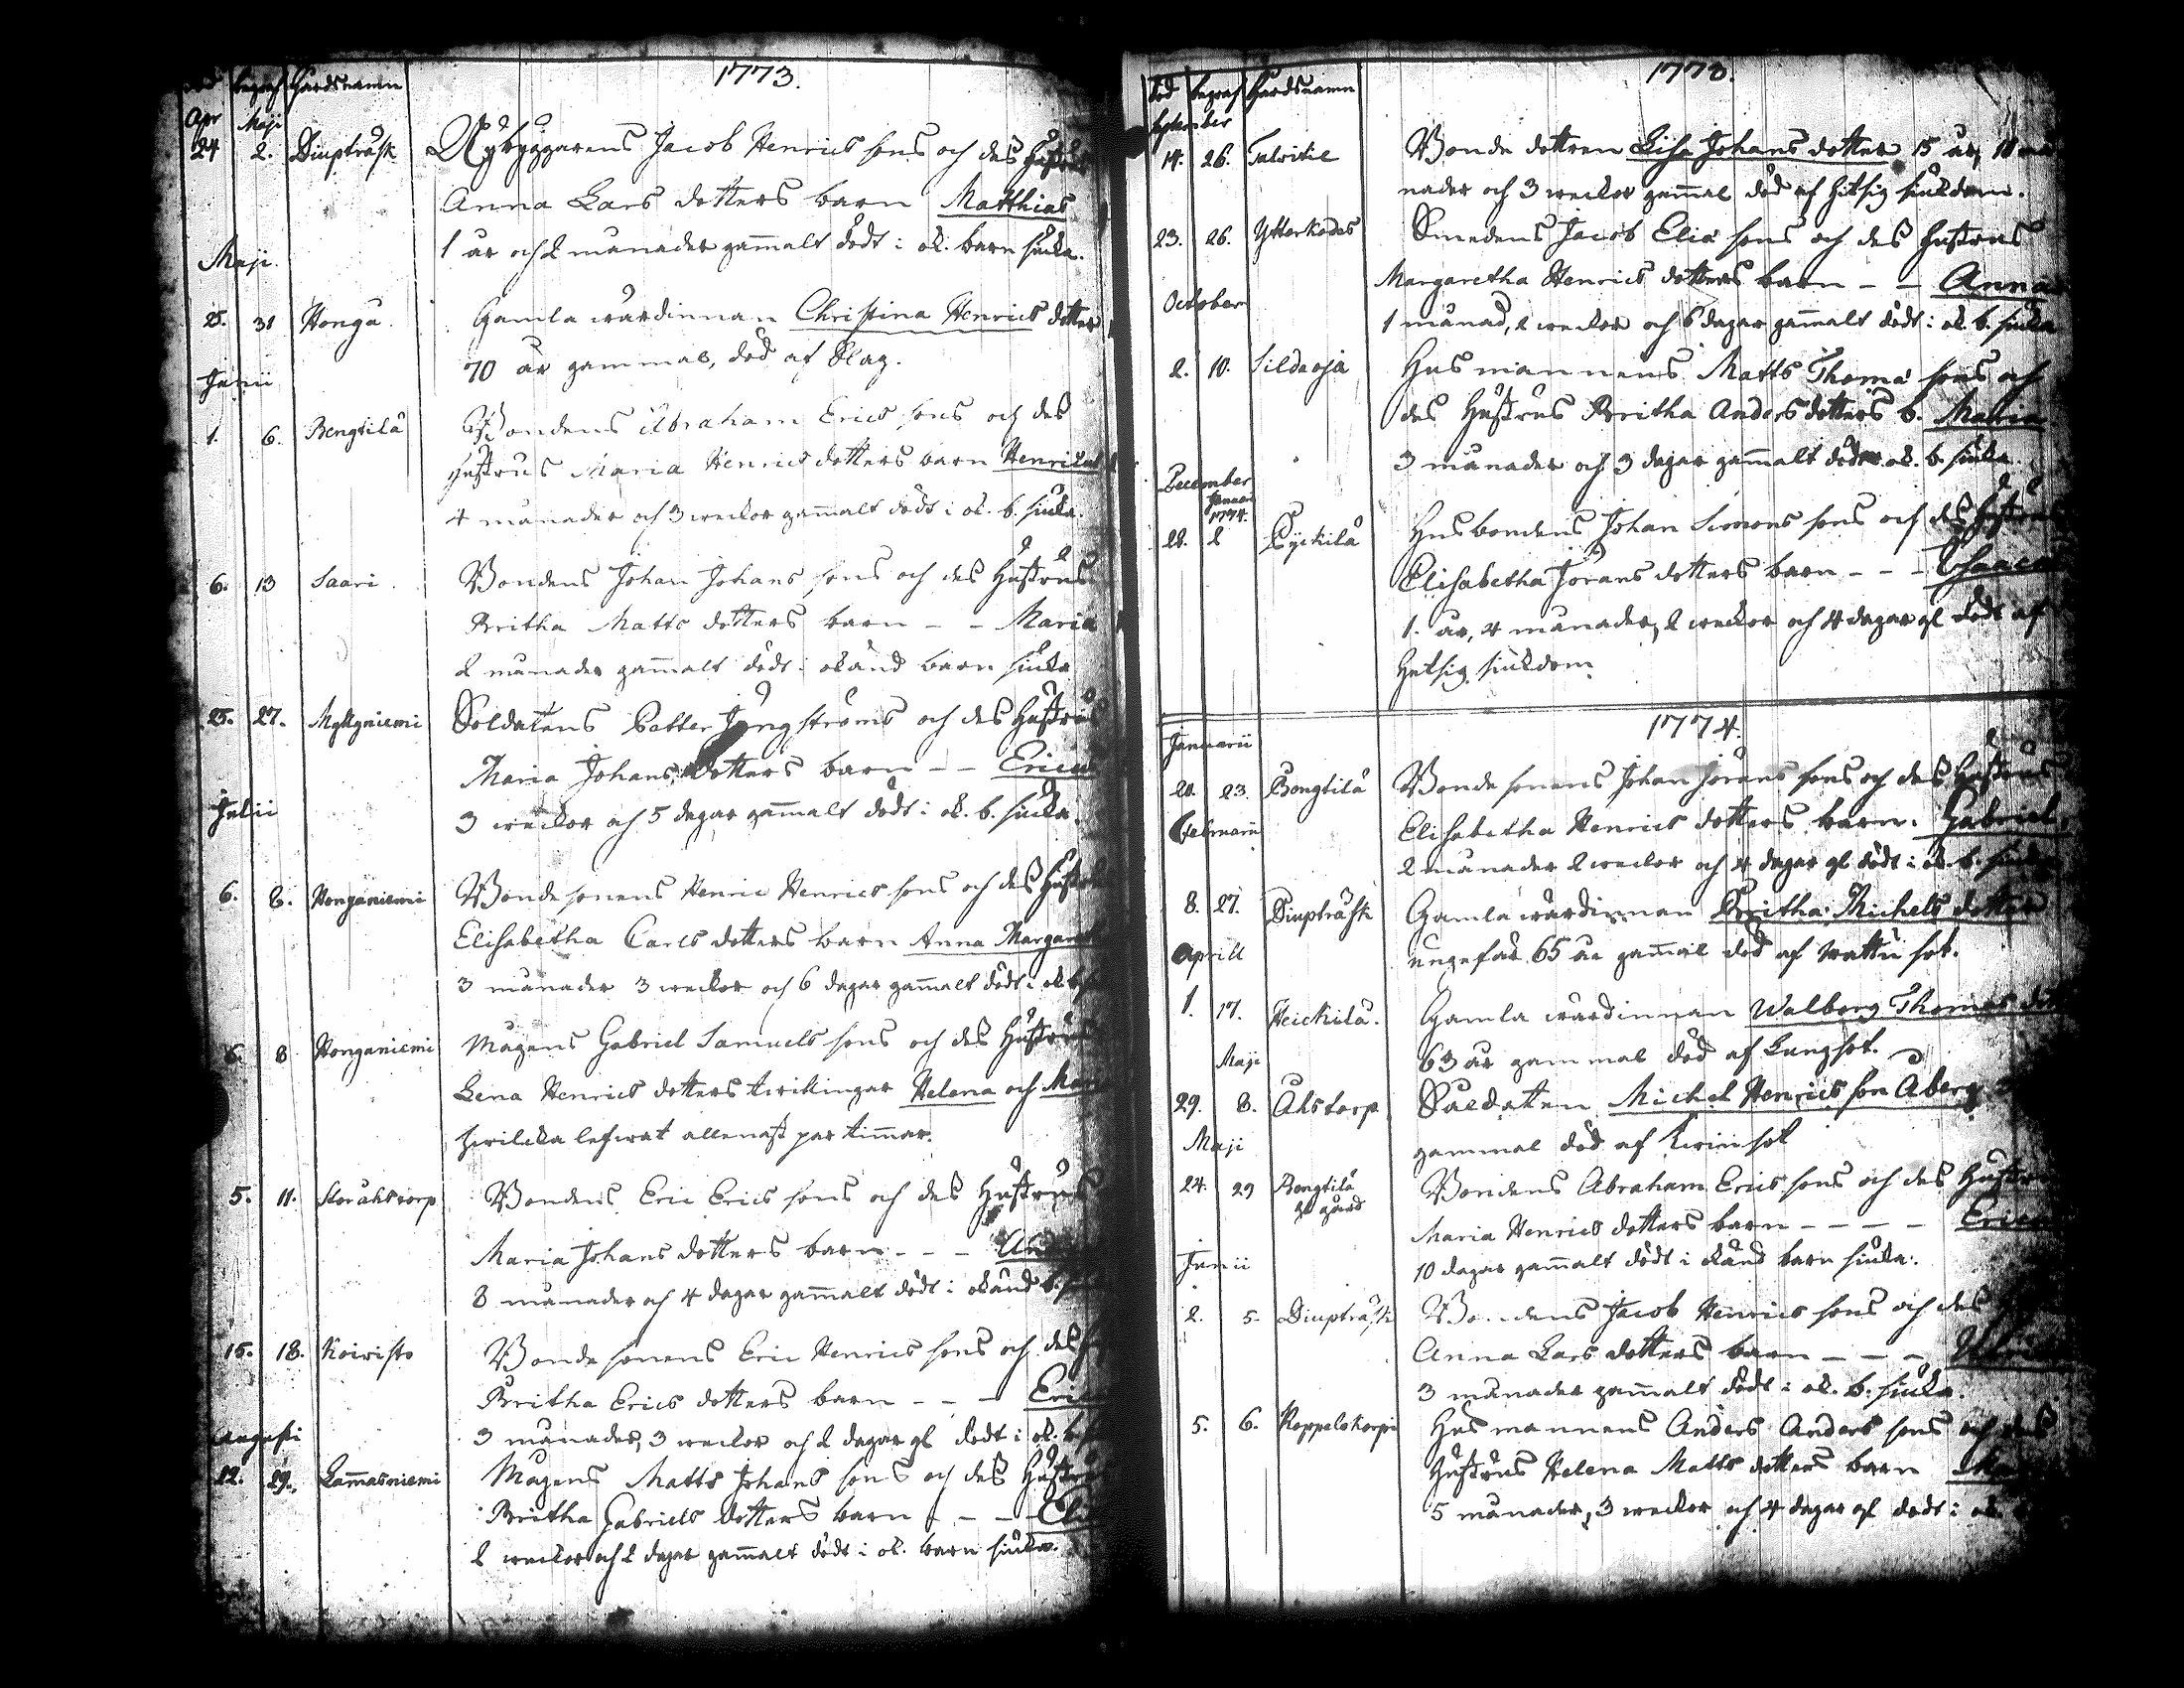 1773.
död begraf Gårdsnamn
Apr Maji
24 2. Diupträsk Nybyggarens Jacob Henrics sons och des Hustrus
Anna Lars dotters barn Matthias
1 år och 2 månader gam̄alt dödt i ok. barn siuka.
Maji.
25. 31 Honga. Gamla wärdinnan Christina Henrics dotter
70 år gammal, död af Slag.
Junii
1. 6. Bengtilä Bondens Abraham Erics sons och des
Hustrus Maria Henrics dotters barn Henricus
4 månader och 3 weckor gam̄alt dödt i ok. b. siuka.
6. 13 Saari. Bondens Johan Johans sons och des Hustrus
Britha Matts dotters barn - - Maria
2 månader gam̄alt dödt i okänd barn siuka
25. 27. Myllyniemi Soldatens Petter Ljungströms och des Hustrus
Maria Johans dotters barn - - Ericus
3 weckor och 5 dagar gam̄alt dödt i ok. b. siuka.
Julii
6. 8. Honganiemi Bonde sonens Henric Henrics sons och des Hustrus
Elisabetha Carls dotters barn Anna
3 månader 3 weckor och 6 dagar gam̄alt dödt i ok. b.
6. 8 Honganiemi Mågens Gabriel Samuels sons och des Hustrus
Lena Henrics dotters twillingar Helena och
hwilcka lefwat allenast par tim̄ar.
5. 11. Storåhstorp Bondens Eric Erics sons och des Hustrus
Maria Johans dotters barn - - -
8 månader och 4 dagar gam̄alt dödt i okänd b.
15. 18. Koivisto Bonde sonens Eric Henrics sons och des
Britha Erics dotters barn - - -
3 månader, 3 weckor och 2 dagar gl dödt i ok. b.
Augusti
22. 29. Lam̄asniemi Mågens Matts Johans sons och des Hustrus
Britha Gabriels dotters barn - - -
2 weckor och 2 dagar gam̄alt dödt i ok. barn siuka.
1773.
död begraf Gårdsnamn
September
14. 26. Talvitie Bonde dottren Lisa Johans dotter 15 år, 10 må
nader och 3 weckor gam̄al död af hitsig siukdom.
23. 26. Ytterkades Smedens Jacob Eliæ sons och des Hustrus
Margaretha Henrics dotters barn - - Anna
1 månad, 2 weckor och 6 dagar gam̄alt dödt i ok. b. siuka
October
2. 10. Sildaoja Husmannens Matts Thomæ sons och
des Hustrus Britha Anders dotters b. Maria
3 månader och 3 dagar gam̄alt dödt i ok. b. siuka.
December
Januari
1774.
22. 2 Pyckilä Husbondens Johan Simons sons och des Hustrus
Elisabetha Jörans dotters barn - - - Isaac
1. år, 4 månader, 2 weckor och 4 dagar gl dödt af
Hetsig siukdom
1774.
Januarii
20. 23. Bengtilä Bonde sonens Johan Jörans sons och des Hustrus
Elisabetha Henrics dotters barn. Gabriel,
2 månader 2 weckor och 4 dagar gl dödt i ok. b. siuka
Februarii
8. 27. Diupträsk Gamla wärdinnan Britha Michels dotter
ungefär 65 år gam̄al död af wattu sot.
Aprill
1. 17. Heickilä. Gamla wärdinnan Walborg Thomas
63 år gammal död af Lungsot.
Maji
29. 8. Åhstorp Soldaten Michel Henrics son Åberg
gammal död af
Maji
24. 29 Bengtilä Bondens Abraham Erics sons och des Hustrus
gård
Maria Henrics dotters barn - - - -
10 dagar gam̄alt dödt i okänd barn siuka.
Junii
2. 5. Diupträsk Bondens Jacob Henrics sons och des
Anna Lars dotters barn - - -
3 månader gam̄alt dödt i ok. b. siuka.
5. 6. Koppelokorpi Husmannens Anders Anders sons och des
Hustrus Helena Matts dotters barn
5 månader, 3 weckor och 4 dagar gl dödt i ok.